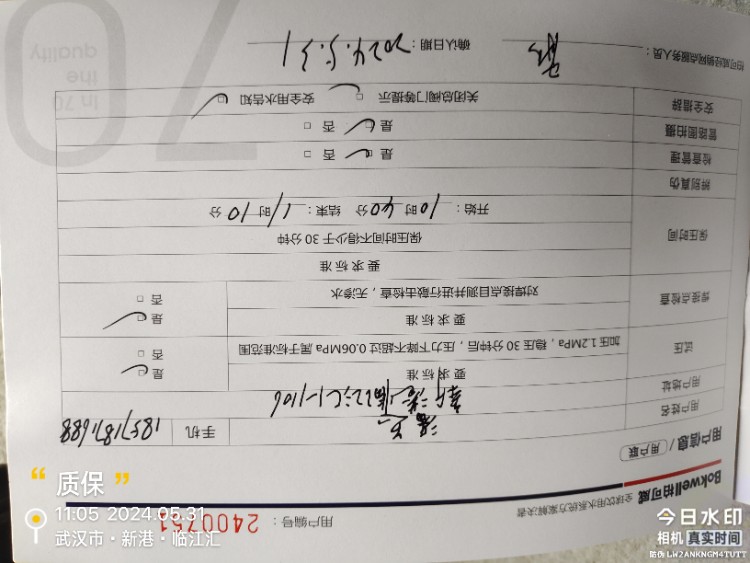 Bokwell柏可威 全球饮用水系统方案解决者
用户编号: 2400751
用户信息 / 用户联
用户姓名
手机 18571871688
用户地址
试压
要求标准
是 □
加压1.2MPa,稳压30分钟后,压力下降不超过0.06MPa属于标准范围
否 □
焊接点检查
要求标准
是 □
对焊接点目测并进行敲击检查,无渗水
否 □
保压时间
要求标准
保压时间不得少于30分钟
开始: 10时40分 结束: 11时10分
辨别真伪
检查管理
是 □ 否 □
管路图拍摄
是 □ 否 □
安全措辞
关闭总阀门等提示 □ 安全用水告知 □
柏可威经销网点服务人员:
确认日期: 2024.5.31
In 70
the
quality
70
“质保”
11:05 2024.05.31
武汉市·新港·临江汇
今日水印
相机 真实时间
防伪 LW2ANKNGM4TUTT